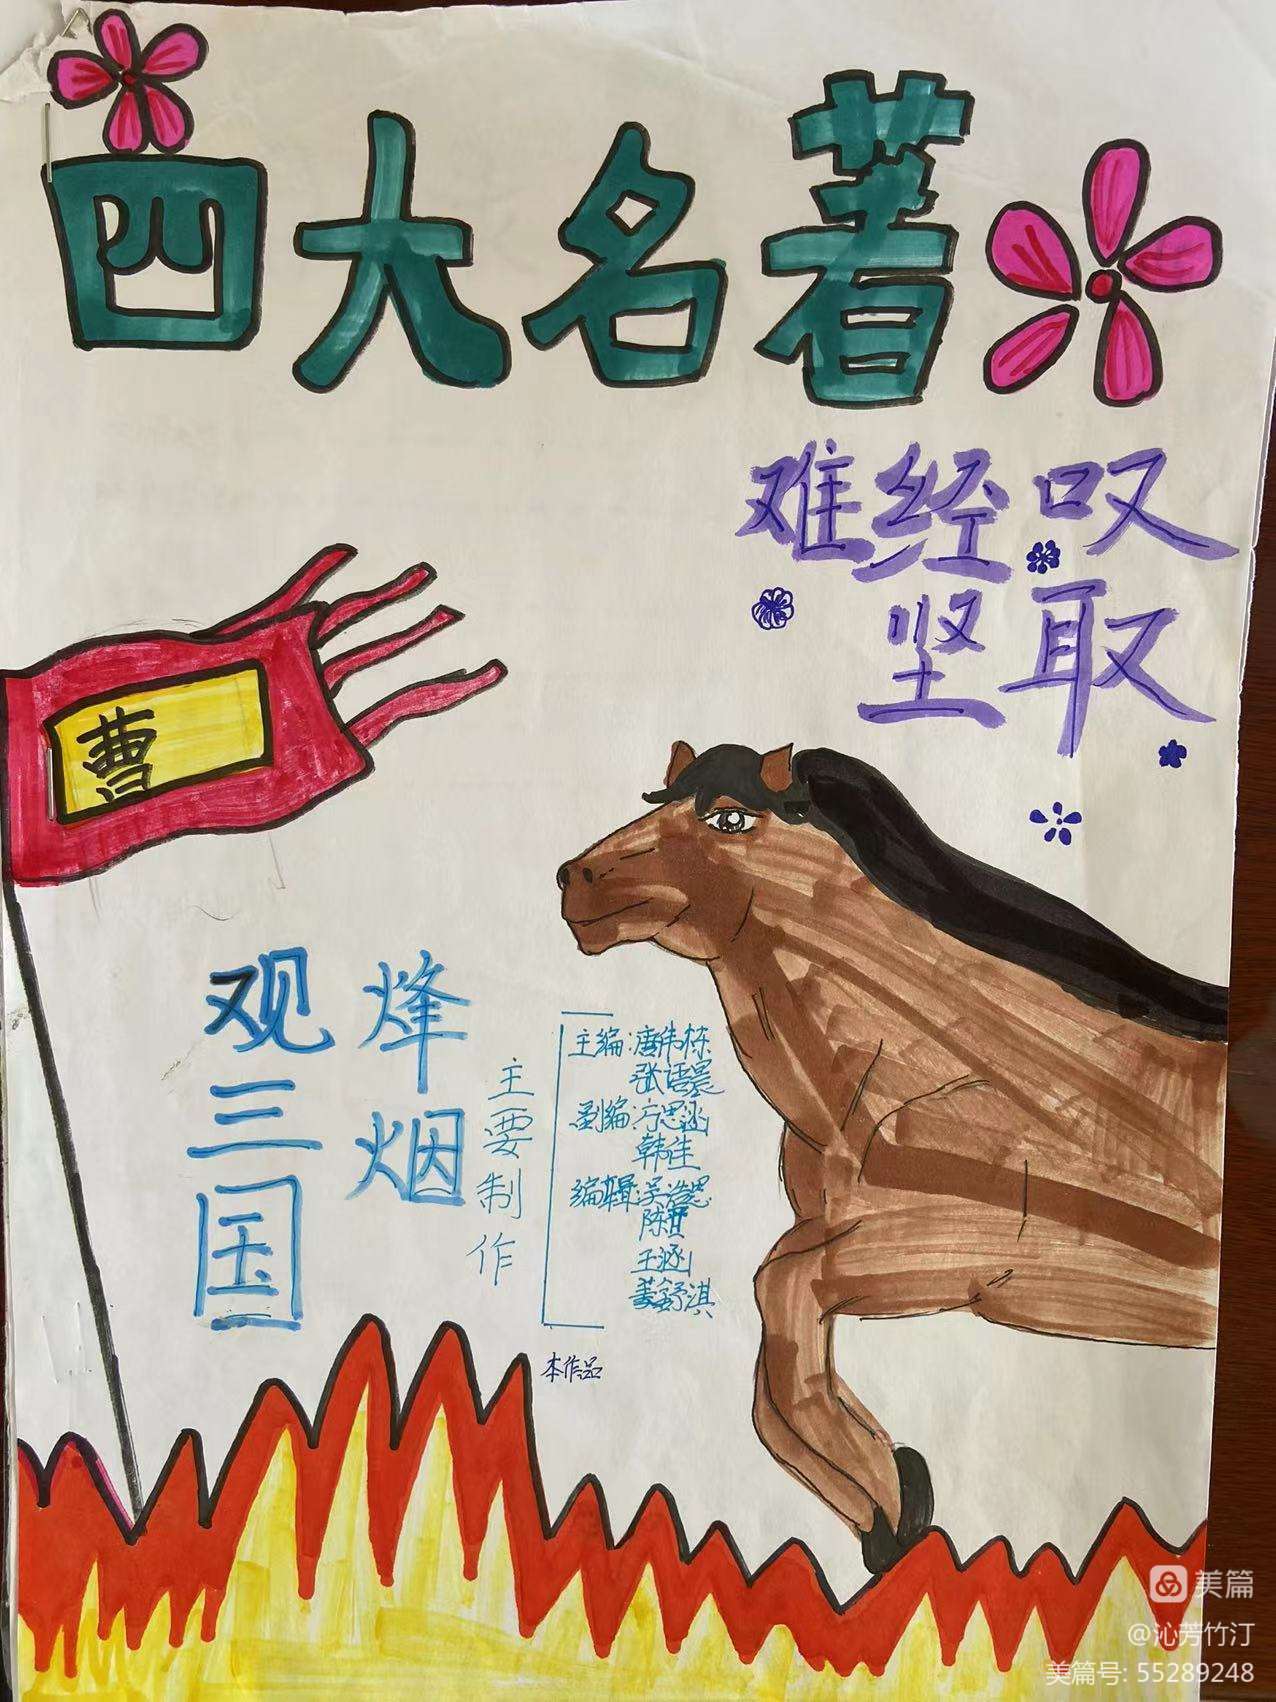 四大名著
叹取
经坚
难
曹
烽烟
观三国
主要制作
主编：唐伟栋
张语晨
副编 方思涵
韩佳
编辑 吴浩思
陈
王涵
姜舒淇
本作品
美篇
@沁芳竹汀
美篇号: 55289248